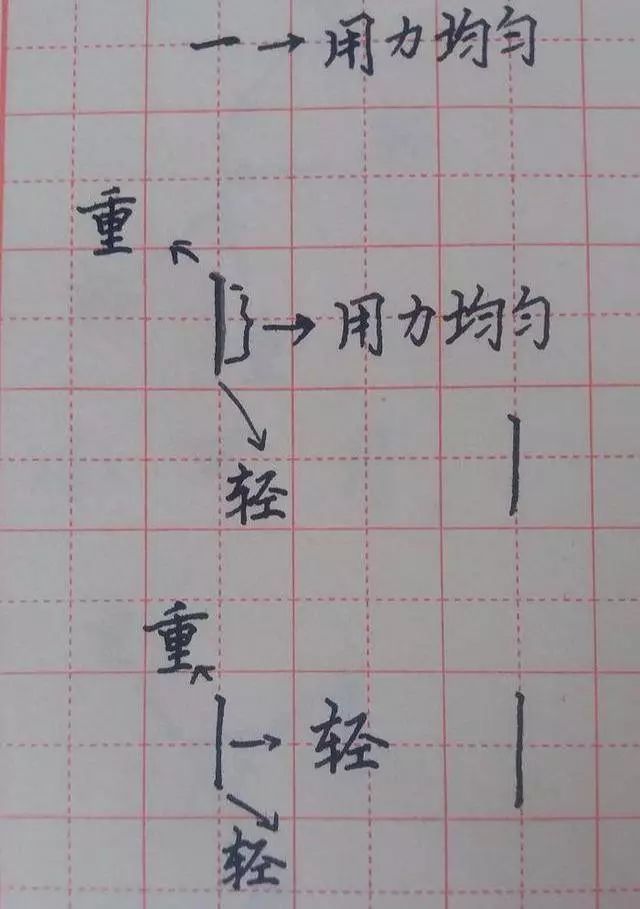 一→用力均匀
重
→用力均匀
轻
重
→轻
轻